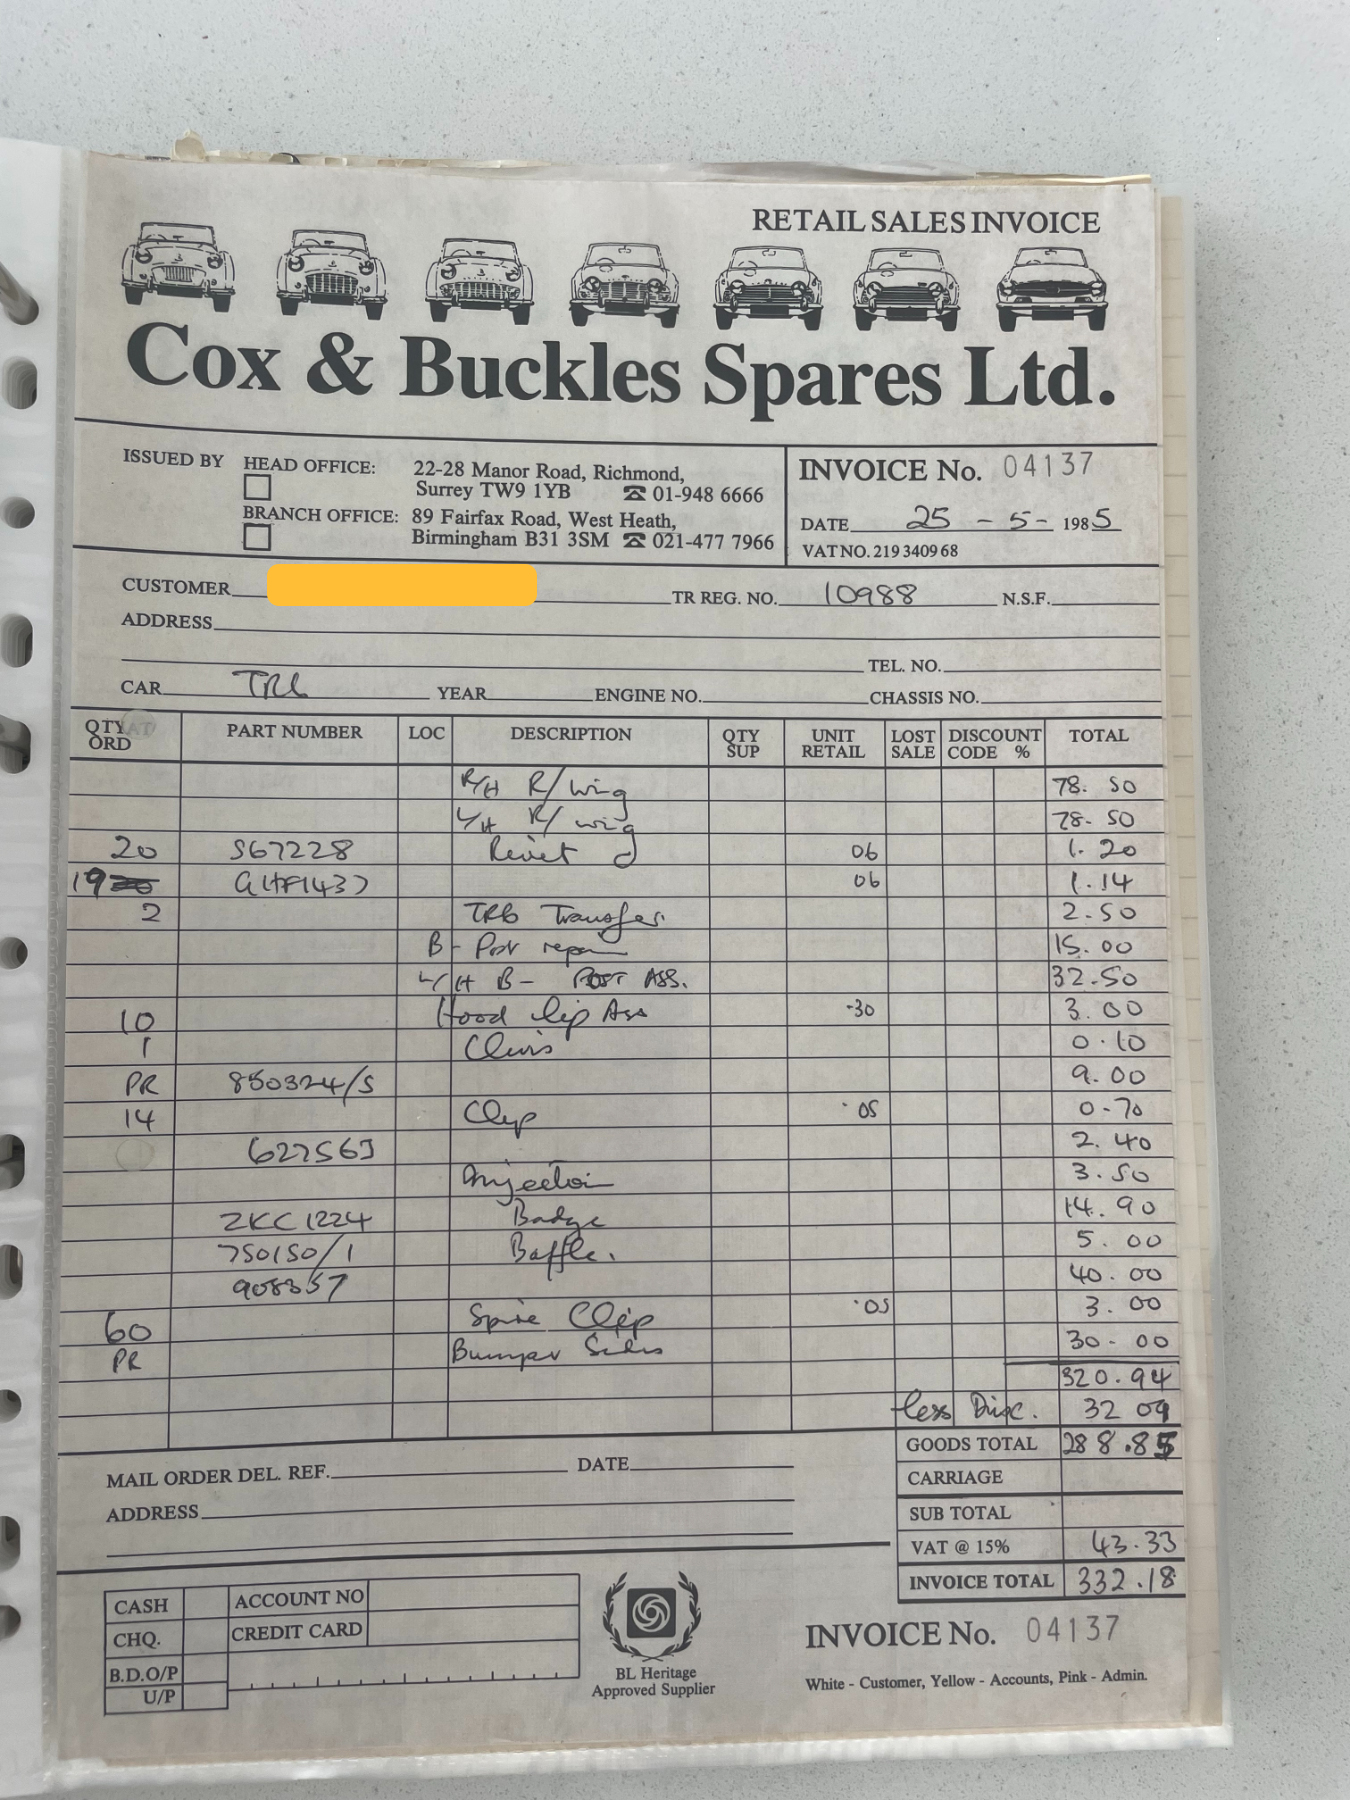 RETAIL SALES INVOICE
Cox & Buckles Spares Ltd.
ISSUED BY HEAD OFFICE: 22-28 Manor Road, Richmond,
Surrey TW9 1YB ☎ 01-948 6666
BRANCH OFFICE: 89 Fairfax Road, West Heath,
Birmingham B31 3SM ☎ 021-477 7966
INVOICE No. 04137
DATE 25 - 5 - 1985
VAT NO. 219 3409 68
CUSTOMER TR REG. NO. 10988 N.S.F.
ADDRESS
TEL. NO.
CAR TR6 YEAR ENGINE NO. CHASSIS NO.
QTY ORD PART NUMBER LOC DESCRIPTION QTY SUP UNIT RETAIL LOST SALE DISCOUNT CODE % TOTAL
R/H R/wing 78. 50
L/H R/wing 78. 50
20 567228 Rivet 06 1. 20
19 GHF1437 06 1.14
2 TR6 Transfer. 2.50
B- Post repair 15. 00
L/H B- POST ASS. 32.50
10 Hood clip Ass .30 3. 00
1 Clevis 0.10
PR 850324/S 9.00
14 Clip .05 0-70
627563 2. 40
Injector 3. 50
ZKC1224 Badge 14. 90
750150/1 Baffle. 5. 00
908357 40. 00
60 Spire Clip .05 3. 00
PR Bumper Sides 30- 00
320.94
less Disc. 32 09
GOODS TOTAL 288.85
MAIL ORDER DEL. REF. DATE
CARRIAGE
ADDRESS
SUB TOTAL
VAT @ 15% 43.33
INVOICE TOTAL 332.18
CASH ACCOUNT NO
CHQ. CREDIT CARD
B.D.O/P
U/P
BL Heritage
Approved Supplier
INVOICE No. 04137
White - Customer, Yellow - Accounts, Pink - Admin.